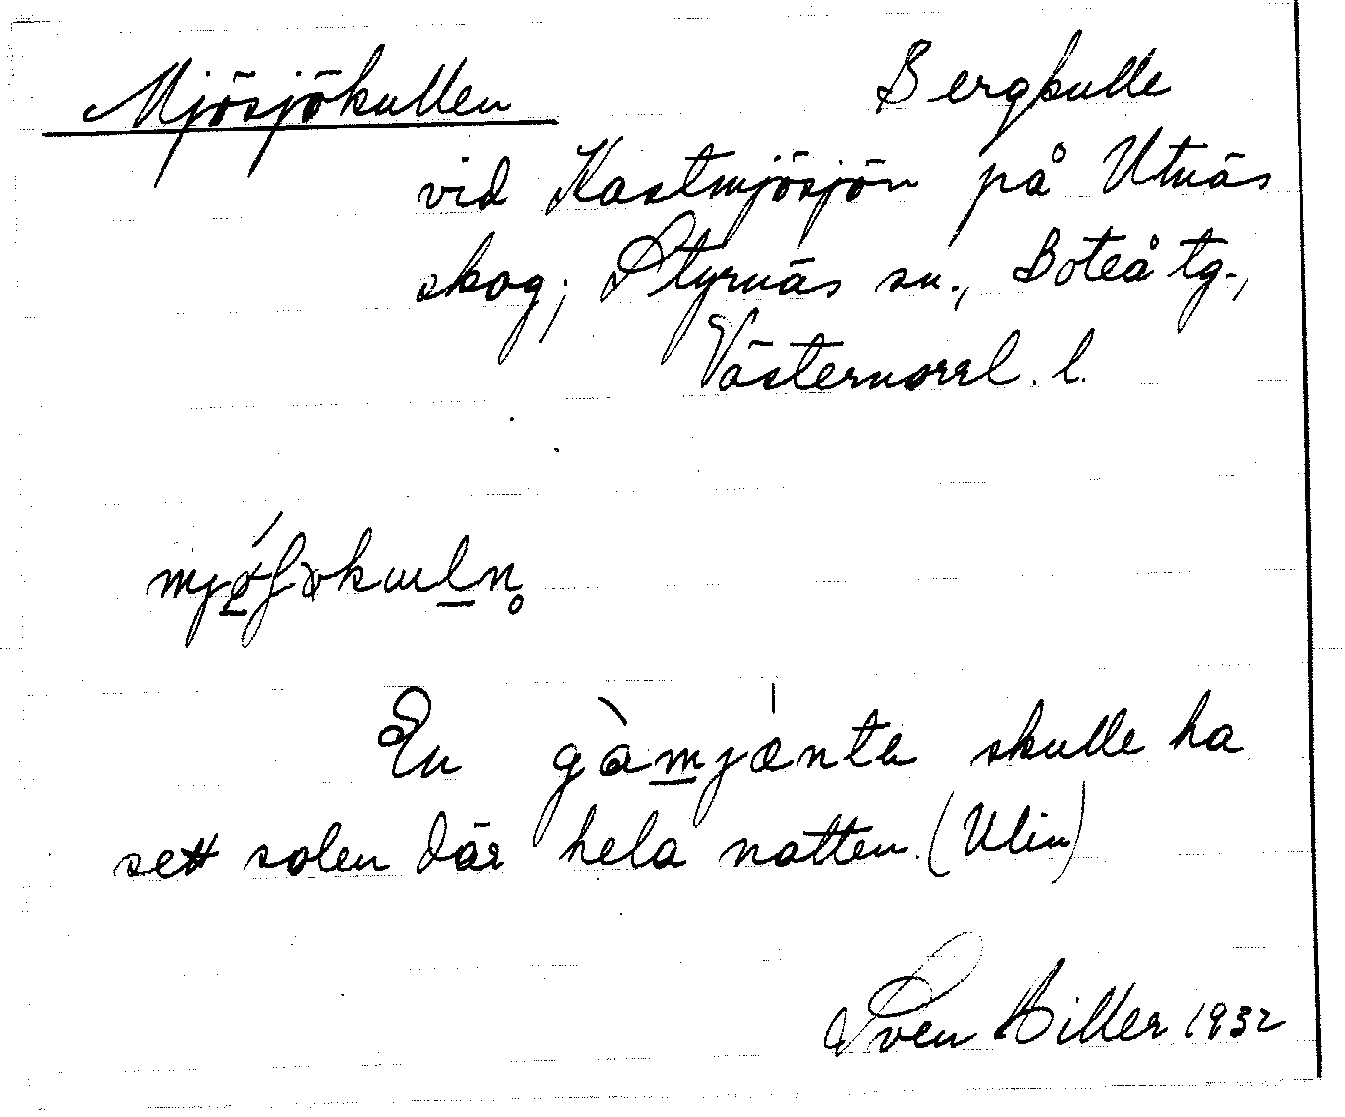 Mjösjökullen Bergkulle
vid Kastmjösjön på Utnäs
skog; Styrnäs sn., Boteå tg.,
Västernorrl. l.
En gàmjænta skulle ha
sett solen där hela natten. (Ulin)
Sven Hiller 1932